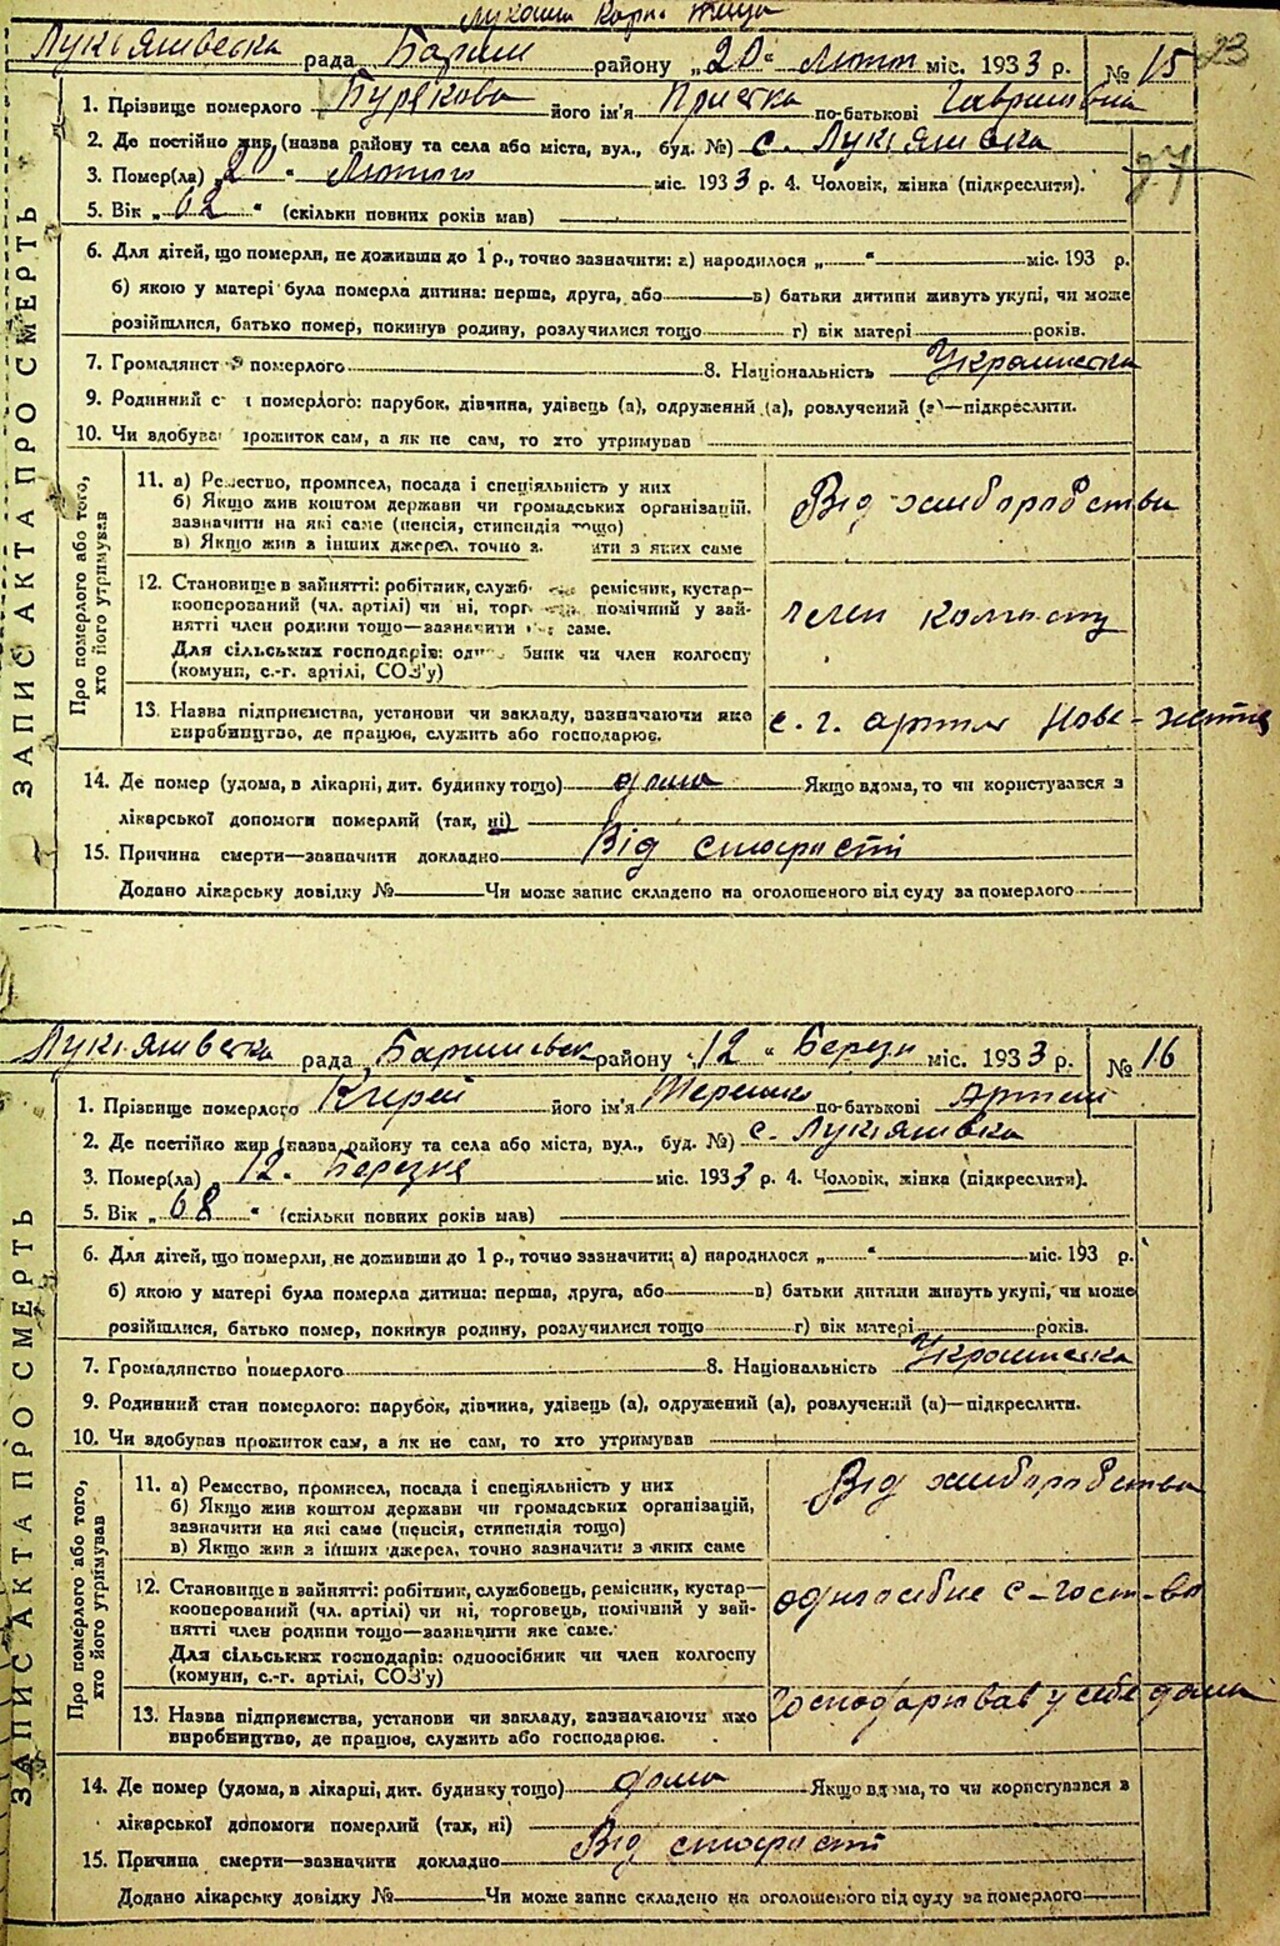 Лукьянивска рада Бариш району „20“ Лютого міс. 1933 р. № 15 23
1. Прізвище померлого Бурякова його ім'я Приська по-батькові Гаврилівна
2. Де постійно жив (назва району та села або міста, вул., буд. №) с. Лукьянівка
3. Помер(ла) „20“ Лютого міс. 1933 р. 4. Чоловік, жінка (підкреслити). 27
5. Вік „62“ (скільки повних років мав)
6. Для дітей, що померли, не доживши до 1 р., точно зазначити: а) народилося „ “ міс. 193 р.
б) якою у матері була померла дитина: перша, друга, або в) батьки дитини живуть укупі, чи може
розійшлися, батько помер, покинув родину, розлучилися тощо г) вік матері років.
7. Громадянст померлого 8. Національність Украинска
9. Родинний с померлого: парубок, дівчина, удівець (а), одружений (а), розлучений (а)—підкреслити.
10. Чи здобува прожиток сам, а як не сам, то хто утримував
ЗАПИС АКТА ПРО СМЕРТЬ
Про померлого або того, хто його утримував
11. а) Ремество, промисел, посада і спеціяльність у них
б) Якщо жив коштом держави чи громадських організацій,
зазначити на які саме (пенсія, стипендія тощо)
в) Якщо жив з інших джерел, точно з ити з яких саме
Від хлиборобства
12. Становище в зайнятті: робітник, службо ремісник, кустар—
кооперований (чл. артілі) чи ні, торг помічний у зай-
нятті член родини тощо—зазначити яке саме.
Для сільських господарів: одно бник чи член колгоспу
(комуни, с.-г. артілі, СОЗ'у)
член колгоспу
13. Назва підприємства, установи чи закладу, зазначаючи яке
виробництво, де працює, служить або господарює.
с. г. артиль Нове-життя
14. Де помер (удома, в лікарні, дит. будинку тощо) дома Якщо вдома, то чи користувався з
лікарської допомоги померлий (так, ні)
15. Причина смерти—зазначити докладно Від старості
Додано лікарську довідку № Чи може запис складено на оголошеного від суду за померлого
Лукьянивска рада Баришевск району „12“ Березня міс. 1933 р. № 16
1. Прізвище померлого його ім'я Терешко по-батькові Артем
2. Де постійно жив (назва району та села або міста, вул., буд. №) с. Лукьянівка
3. Помер(ла) „12“ Березня міс. 1933 р. 4. Чоловік, жінка (підкреслити).
5. Вік „68“ (скільки повних років мав)
6. Для дітей, що померли, не доживши до 1 р., точно зазначити: а) народилося „ “ міс. 193 р.
б) якою у матері була померла дитина: перша, друга, або в) батьки дитини живуть укупі, чи може
розійшлися, батько помер, покинув родину, розлучилися тощо г) вік матері років.
7. Громадянство померлого 8. Національність Украинска
9. Родинний стан померлого: парубок, дівчина, удівець (а), одружений (а), розлучений (а)—підкреслити.
10. Чи здобував прожиток сам, а як не сам, то хто утримував
ЗАПИС АКТА ПРО СМЕРТЬ
Про померлого або того, хто його утримував
11. а) Ремество, промисел, посада і спеціяльність у них
б) Якщо жив коштом держави чи громадських організацій,
зазначити на які саме (пенсія, стипендія тощо)
в) Якщо жив з інших джерел, точно зазначити з яких саме
Від хлиборобства
12. Становище в зайнятті: робітник, службовець, ремісник, кустар—
кооперований (чл. артілі) чи ні, торговець, помічний у зай-
нятті член родини тощо—зазначити яке саме.
Для сільських господарів: одноосібник чи член колгоспу
(комуни, с.-г. артілі, СОЗ'у)
одноосібне с-госп-во
13. Назва підприємства, установи чи закладу, зазначаючи яке
виробництво, де працює, служить або господарює.
Господарював у себе дома
14. Де помер (удома, в лікарні, дит. будинку тощо) дома Якщо вдома, то чи користувався з
лікарської допомоги померлий (так, ні)
15. Причина смерти—зазначити докладно Від старості
Додано лікарську довідку № Чи може запис складено на оголошеного від суду за померлого